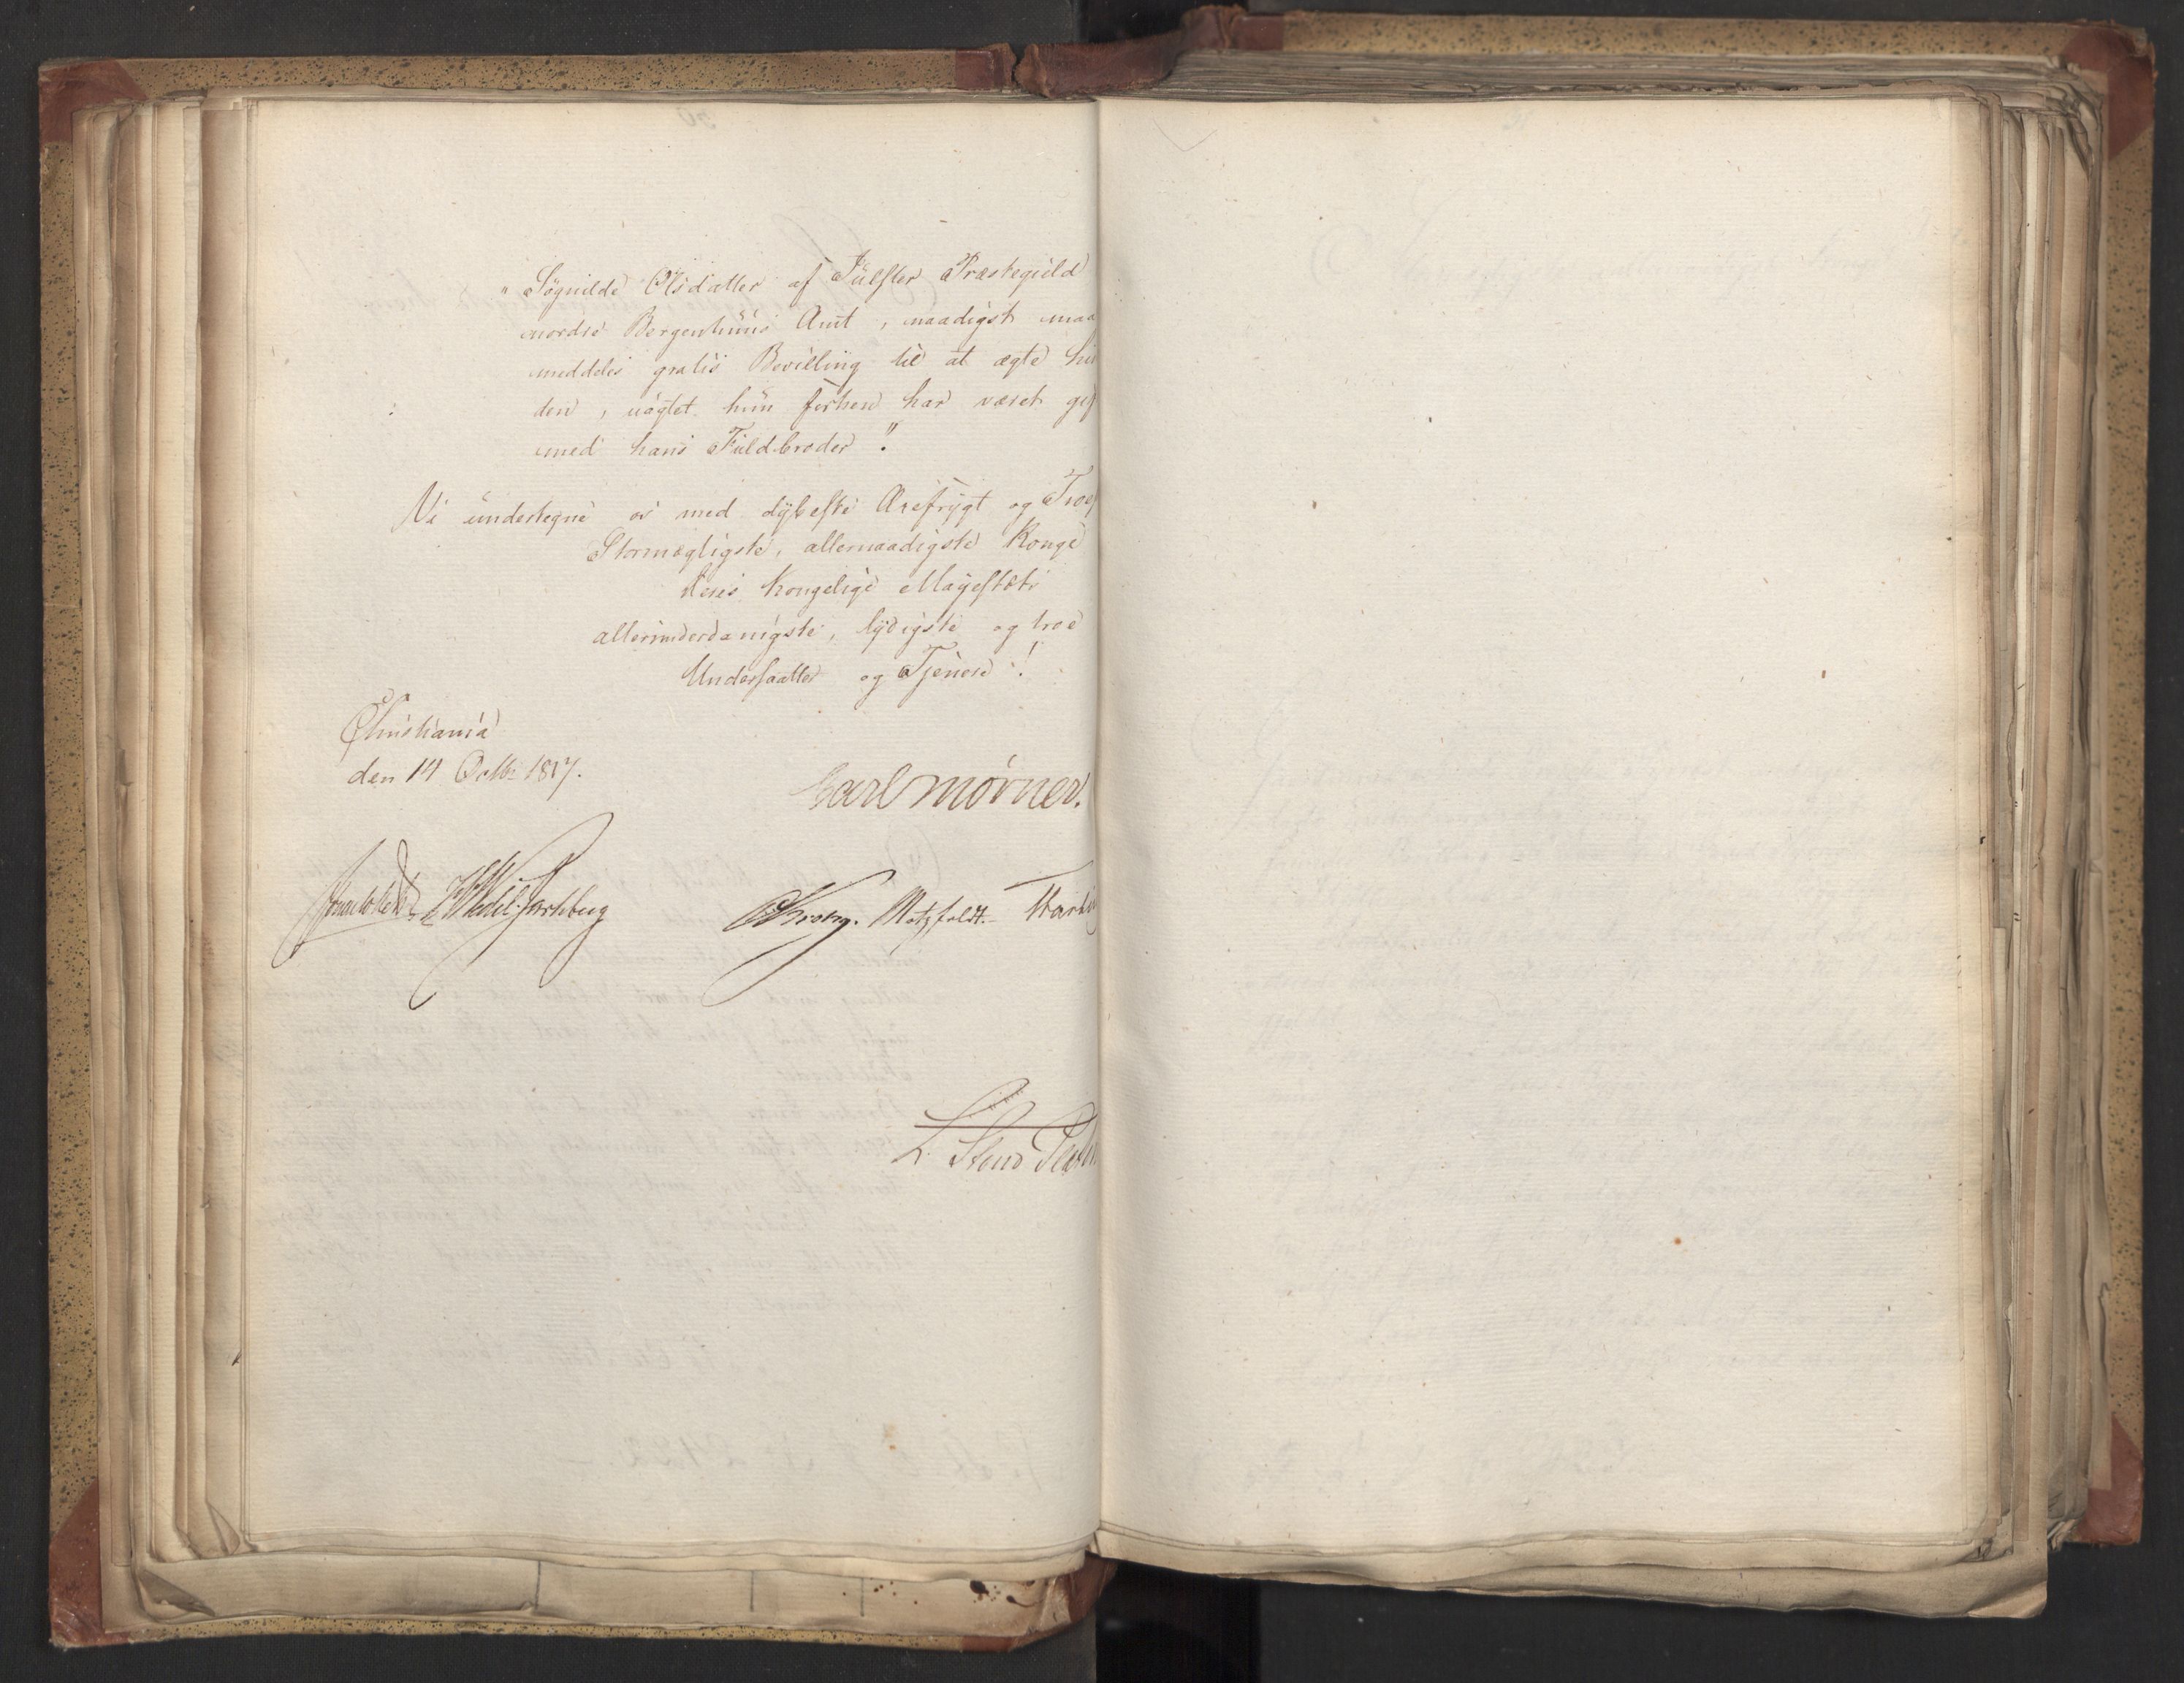 " Søgnilde Olsdatter af Jülster Præstegield
nordre Bergenhuus Amt, naadigst maa
meddeles gratis Bevilling til at ægte hin
den, uagtet hun forhen har været gif
med hans Fuldbroder".
Vi undertegne os med dybeste Ærefrygt og Troes
Stormægtigste, allernaadigste Konge
Deres Kongelige Majestæts
allerunderdanigste, lydigste og troe
Undersaatter og Tjenere!
Christiania
den 14 Octbr 1817.
Carl Mörner.
Wedel-Jarlsberg Krogh. Motzfeldt.
L. Stoud Plat